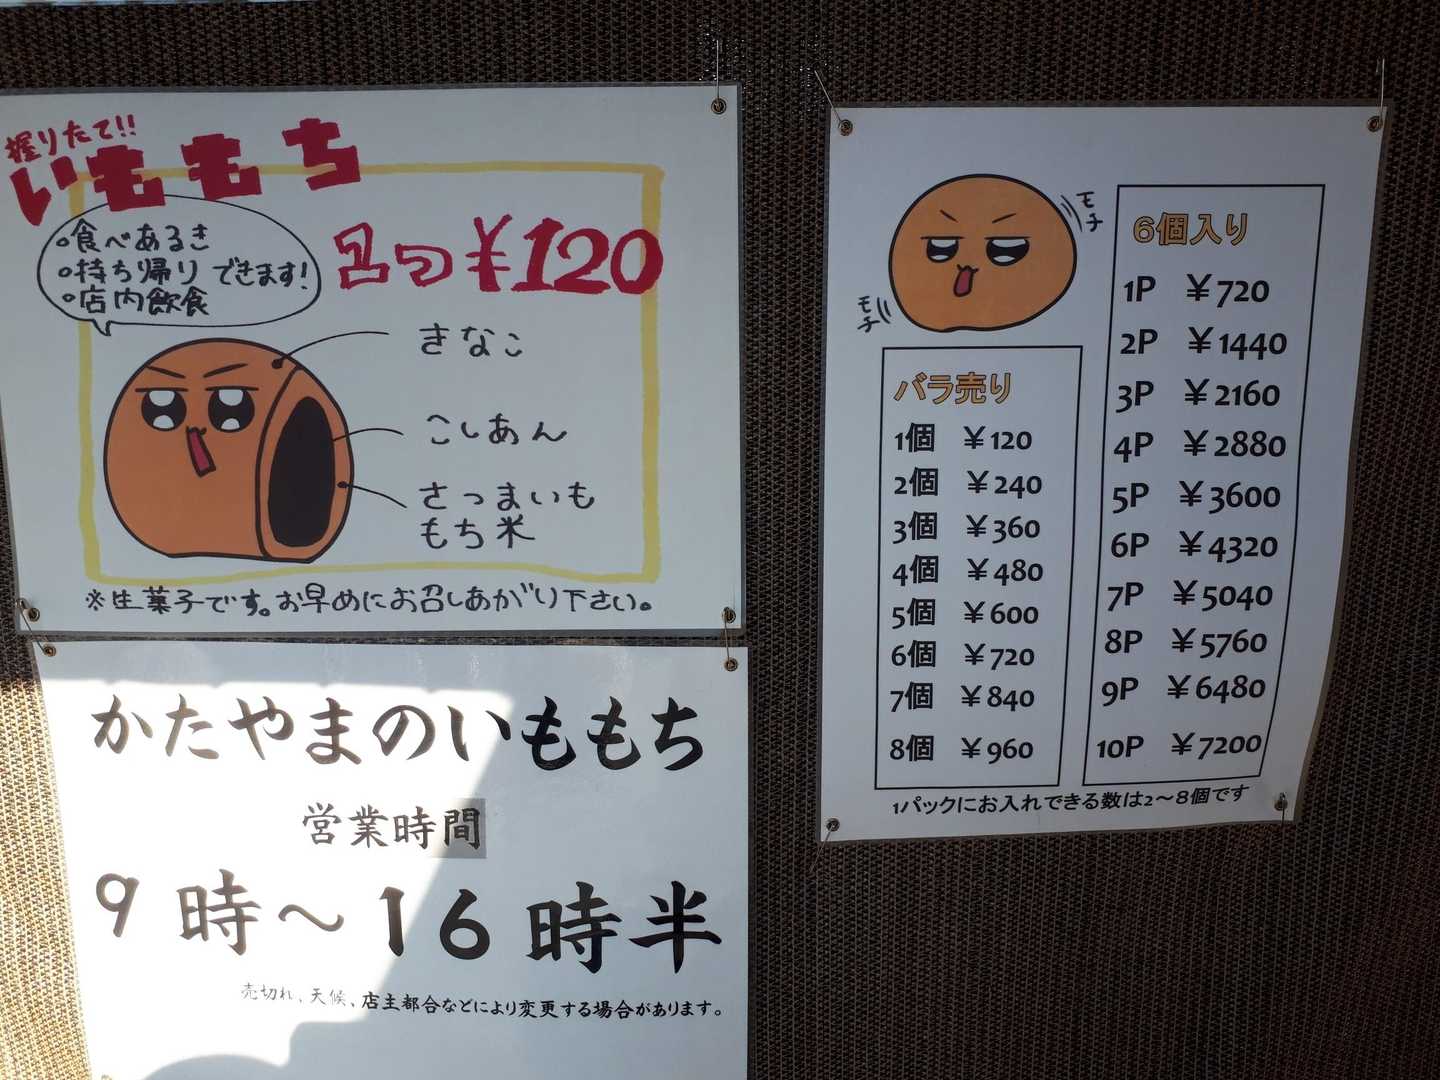 握りたて!!
いももち
1つ¥120
○食べあるき
○持ち帰り できます!
○店内飲食
きなこ
こしあん
さつまいも
もち米
※生菓子です。お早めにお召しあがり下さい。
かたやまのいももち
営業時間
9時～16時半
売切れ、天候、店主都合などにより変更する場合があります。
モチ
モチ
バラ売り
1個 ¥120
2個 ¥240
3個 ¥360
4個 ¥480
5個 ¥600
6個 ¥720
7個 ¥840
8個 ¥960
6個入り
1P ¥720
2P ¥1440
3P ¥2160
4P ¥2880
5P ¥3600
6P ¥4320
7P ¥5040
8P ¥5760
9P ¥6480
10P ¥7200
1パックにお入れできる数は2～8個です